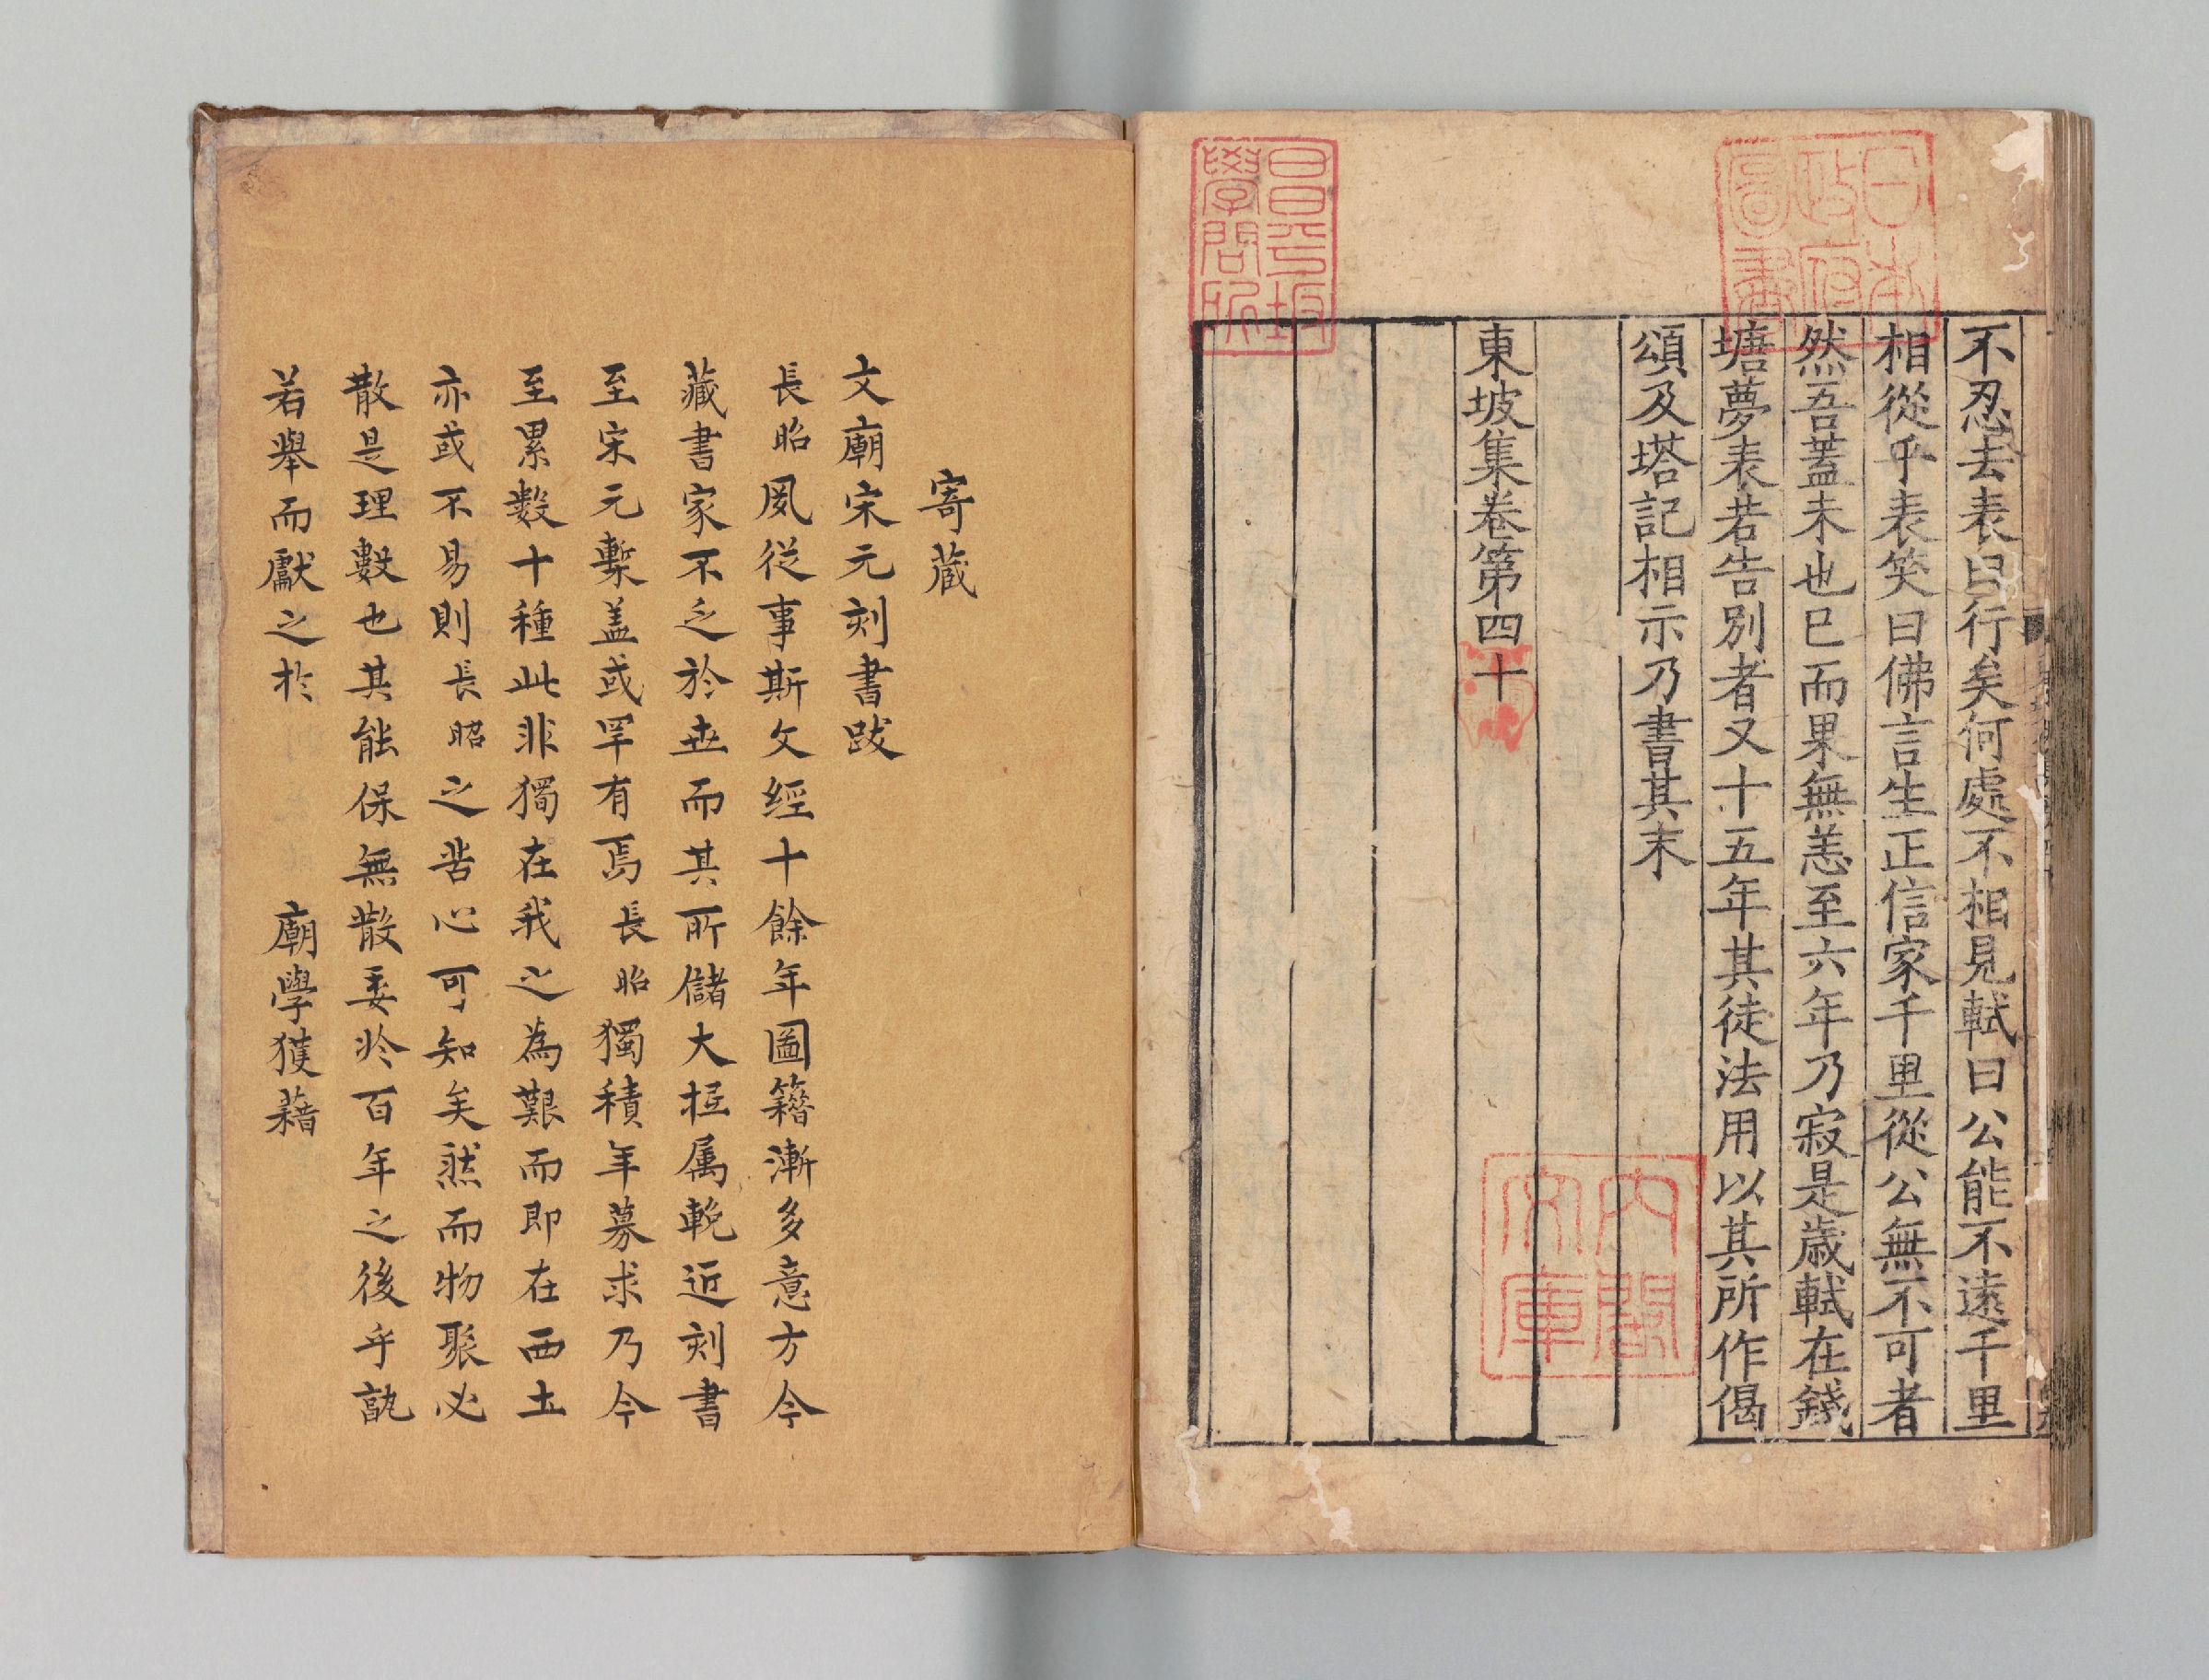 不忍去表曰行矣何處不相見軾曰公能不遠千里
相從乎表笑曰佛言生正信家千里從公無不可者
然吾蓋未也已而果無恙至六年乃寂是歳軾在錢
塘夢表若告別者又十五年其徒法用以其所作偈
頌及塔記相示乃書其末
東坡集卷第四十
日本政府圖書
昌平坂學問所
內閣文庫
寄蔵
文廟宋元刻書跋
長昭夙從事斯文經十餘年圖籍漸多意方今
藏書家不乏於世而其所儲大抵属輓近刻書
至宋元槧盖或罕有焉長昭獨積年募求乃今
至累數十種此非獨在我之為艱而即在西土
亦或不易則長昭之苦心可知矣然而物聚必
散是理數也其能保無散委於百年之後乎孰
若舉而獻之於 廟學獲藉